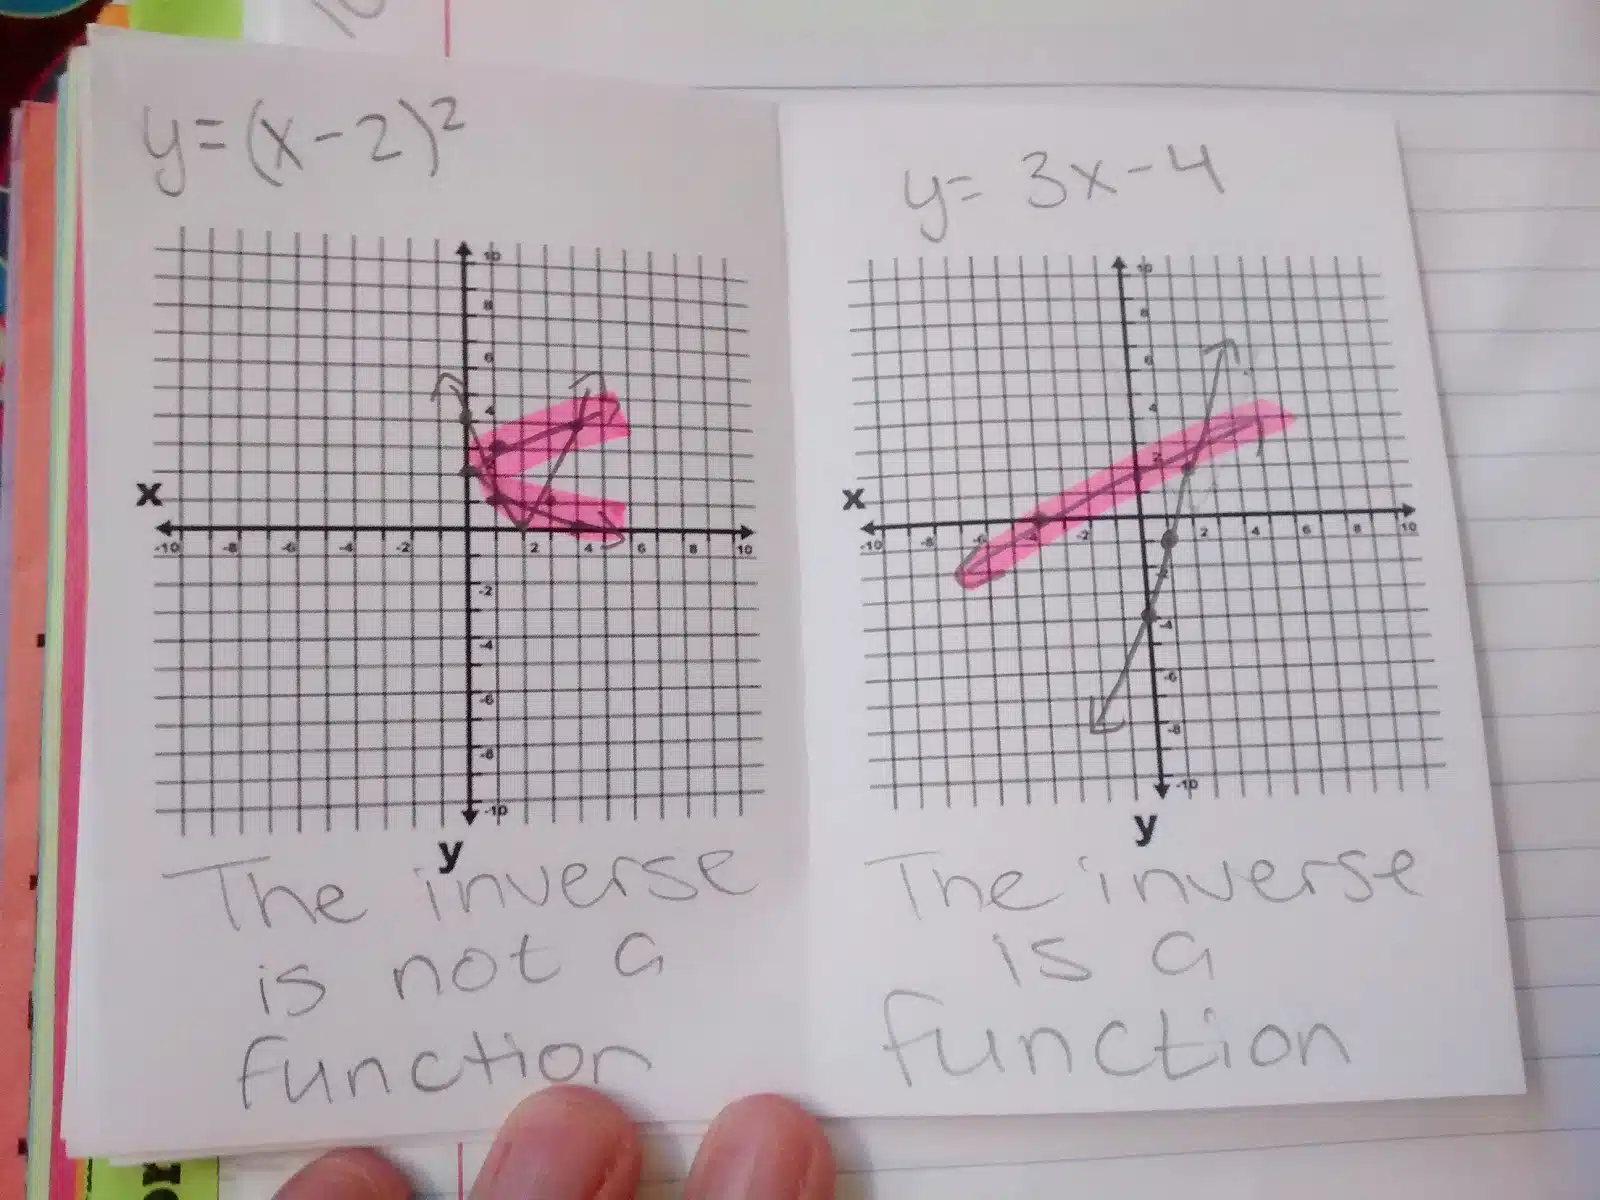 y=(x-2)²
10
8
6
4
2
x
-10 -8 -6 -4 -2 2 4 6 8 10
-2
-4
-6
-8
-10
y
The inverse
is not a
function
y= 3x-4
10
8
6
4
2
x
-10 -8 -6 -4 -2 2 4 6 8 10
-4
-6
-8
-10
y
The inverse
is a
function